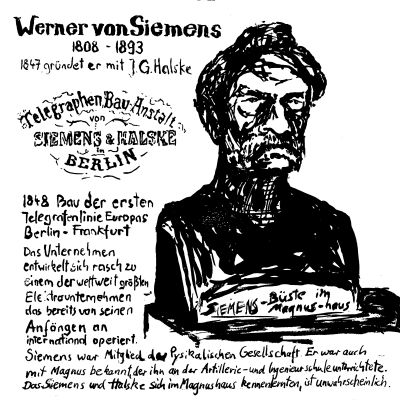 Werner von Siemens
1808 - 1893
1847 gründet er mit J.G. Halske
Telegraphen Bau-Anstalt
von
SIEMENS & HALSKE
in
BERLIN
1848 Bau der ersten
Telegrafenlinie Europas
Berlin - Frankfurt
Das Unternehmen
entwickelt sich rasch zu
einem der weltweit größten
Elektrounternehmen
das bereits von seinen
Anfängen an
international operiert.
SIEMENS - Büste im
Magnus-haus
Siemens war Mitglied der Pysikalischen Gesellschaft. Er war auch
mit Magnus bekannt der ihn an der Artillerie- und Ingenieurschule unterrichtete.
Das Siemens und Halske sich im Magnushaus kennenlernten, ist unwahrscheinlich.